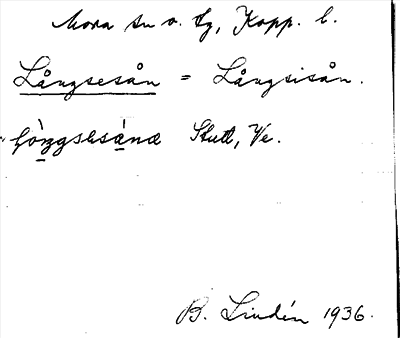 Mora sn o. tg, Kopp. l.
Långsesån = Långsisån.
Stutt, Ve.
B. Lindén 1936.